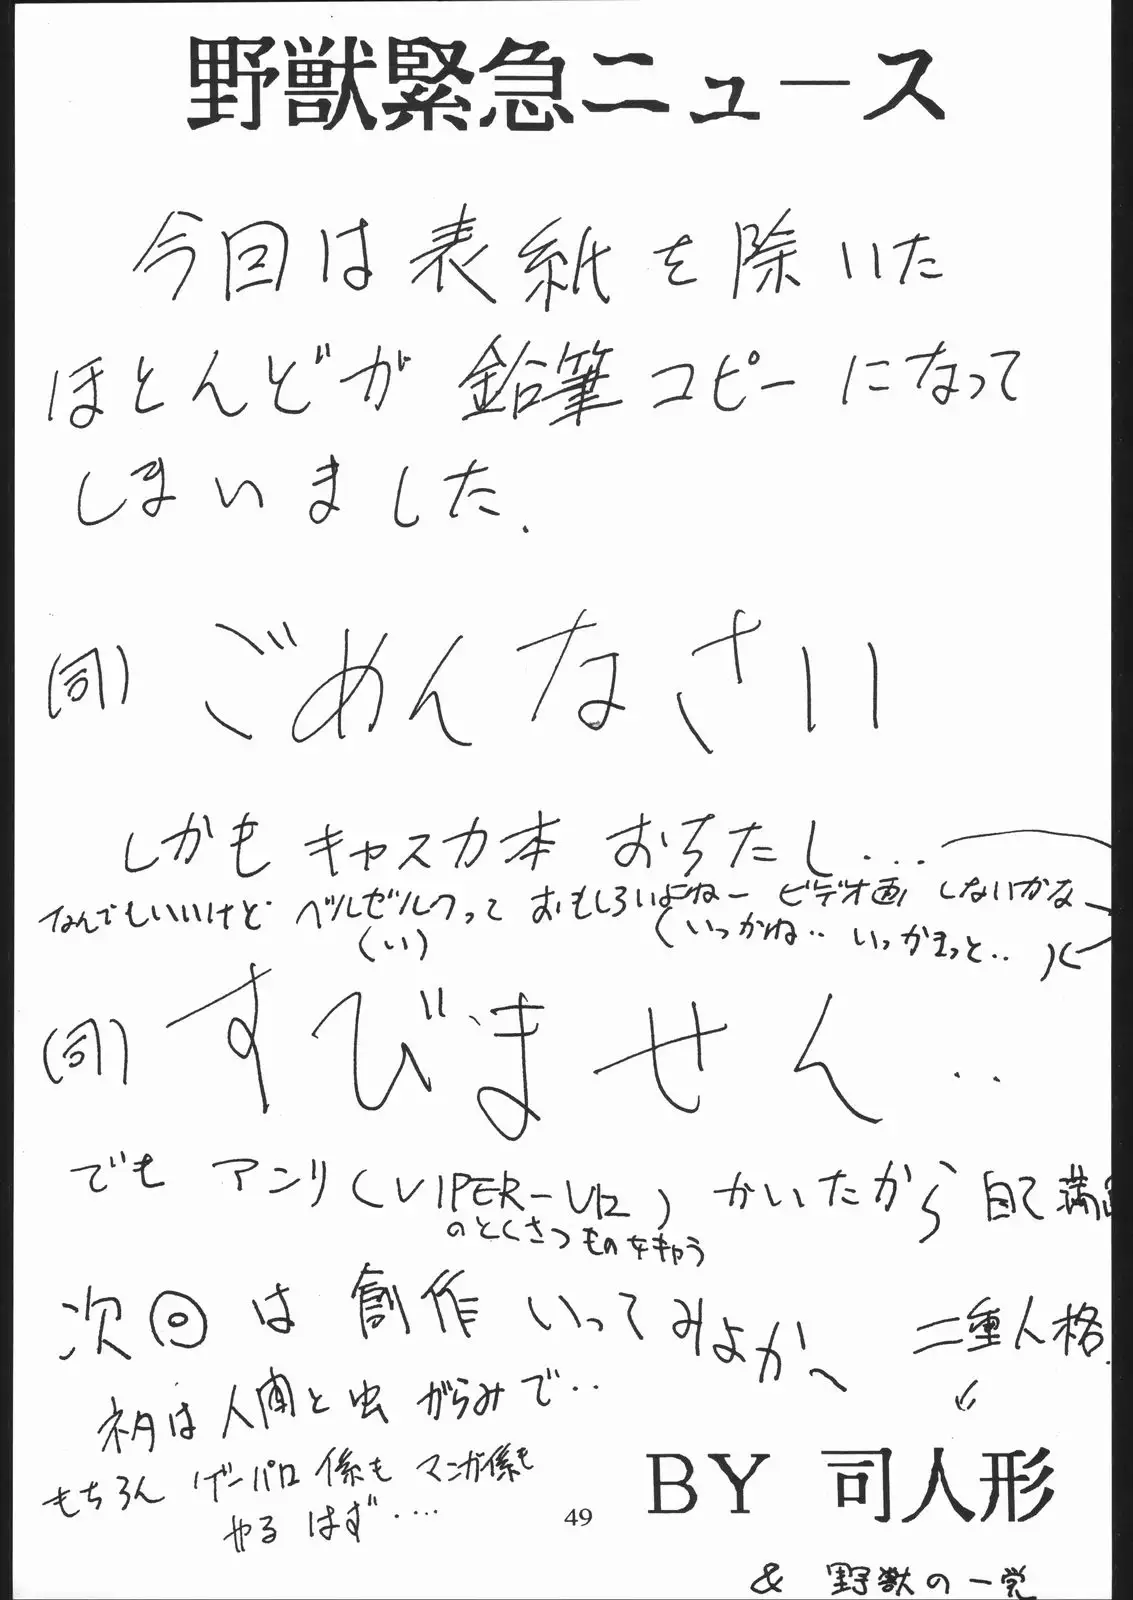 野獣緊急ニュース
今回は表紙を除いた
ほとんどが鉛筆コピーになって
しまいました.
(司) ごめんなさい
しかも キャスカ本 おちたし...
なんでもいいけど ベルセルクって おもしろいよねー ビデオ画 しないかな
(い) (いっかね.. いっかまっと..
(司) すびません..
でも アンリ(VIPER-V12) かいたから 自己満
のとくさつものをキャラ
次回は創作いってみよか〜 二重人格.
初は人間と虫がらみで..
もちろん ゲーパロ係も マンガ係も
やる はず....
BY 司人形
& 野獣の一党
49